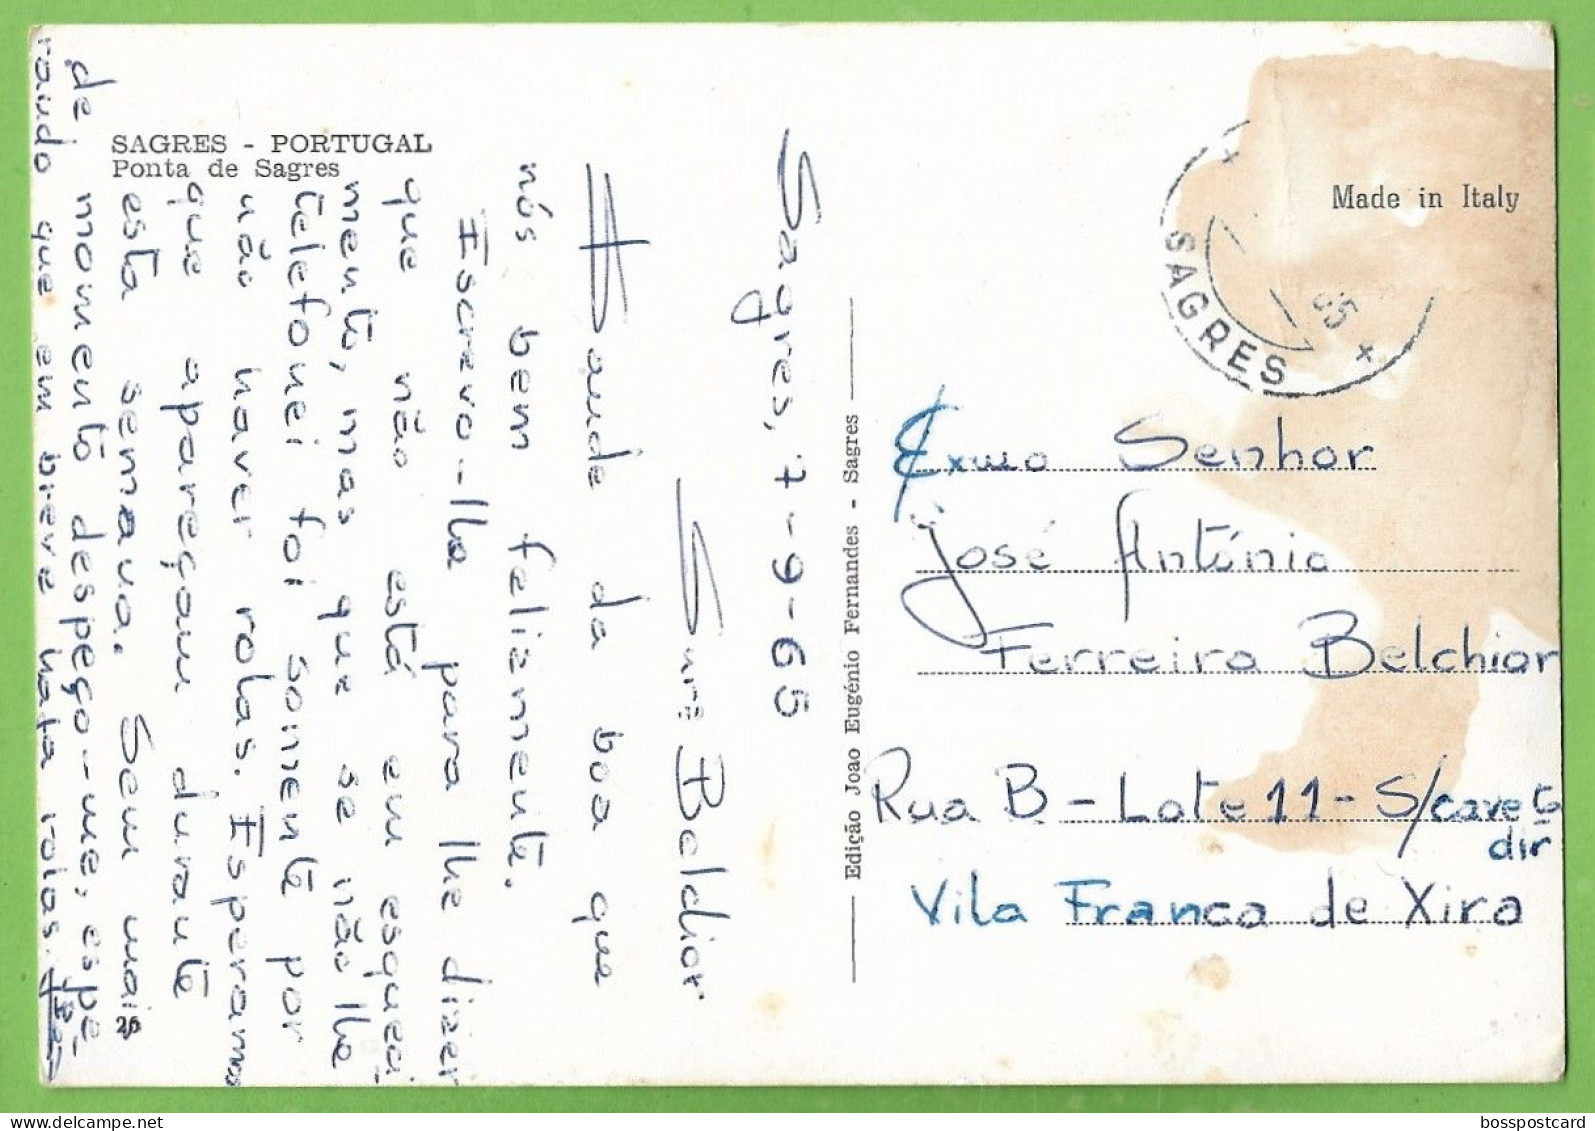 SAGRES - PORTUGAL
Ponta de Sagres
Sagres, 7-9-65
Snr: Belchior
Saude da boa que
nós bem felizmente.
Escrevo-lhe para lhe dizer
que não está em esqueci
mento, mas que se não lhe
telefonei foi somente por
não haver rolas. Esperamos
que apareçam durante
esta semava. Sem mais
de momento despeço-me, espe-
rando que em breve haja rolas.
26
Edição Joao Eugénio Fernandes - Sagres
Made in Italy
SAGRES
65
Exmo Senhor
José António
Ferreira Belchior
Rua B - Lote 11 - S/cave
dir
Vila Franca de Xira
bosspostcard